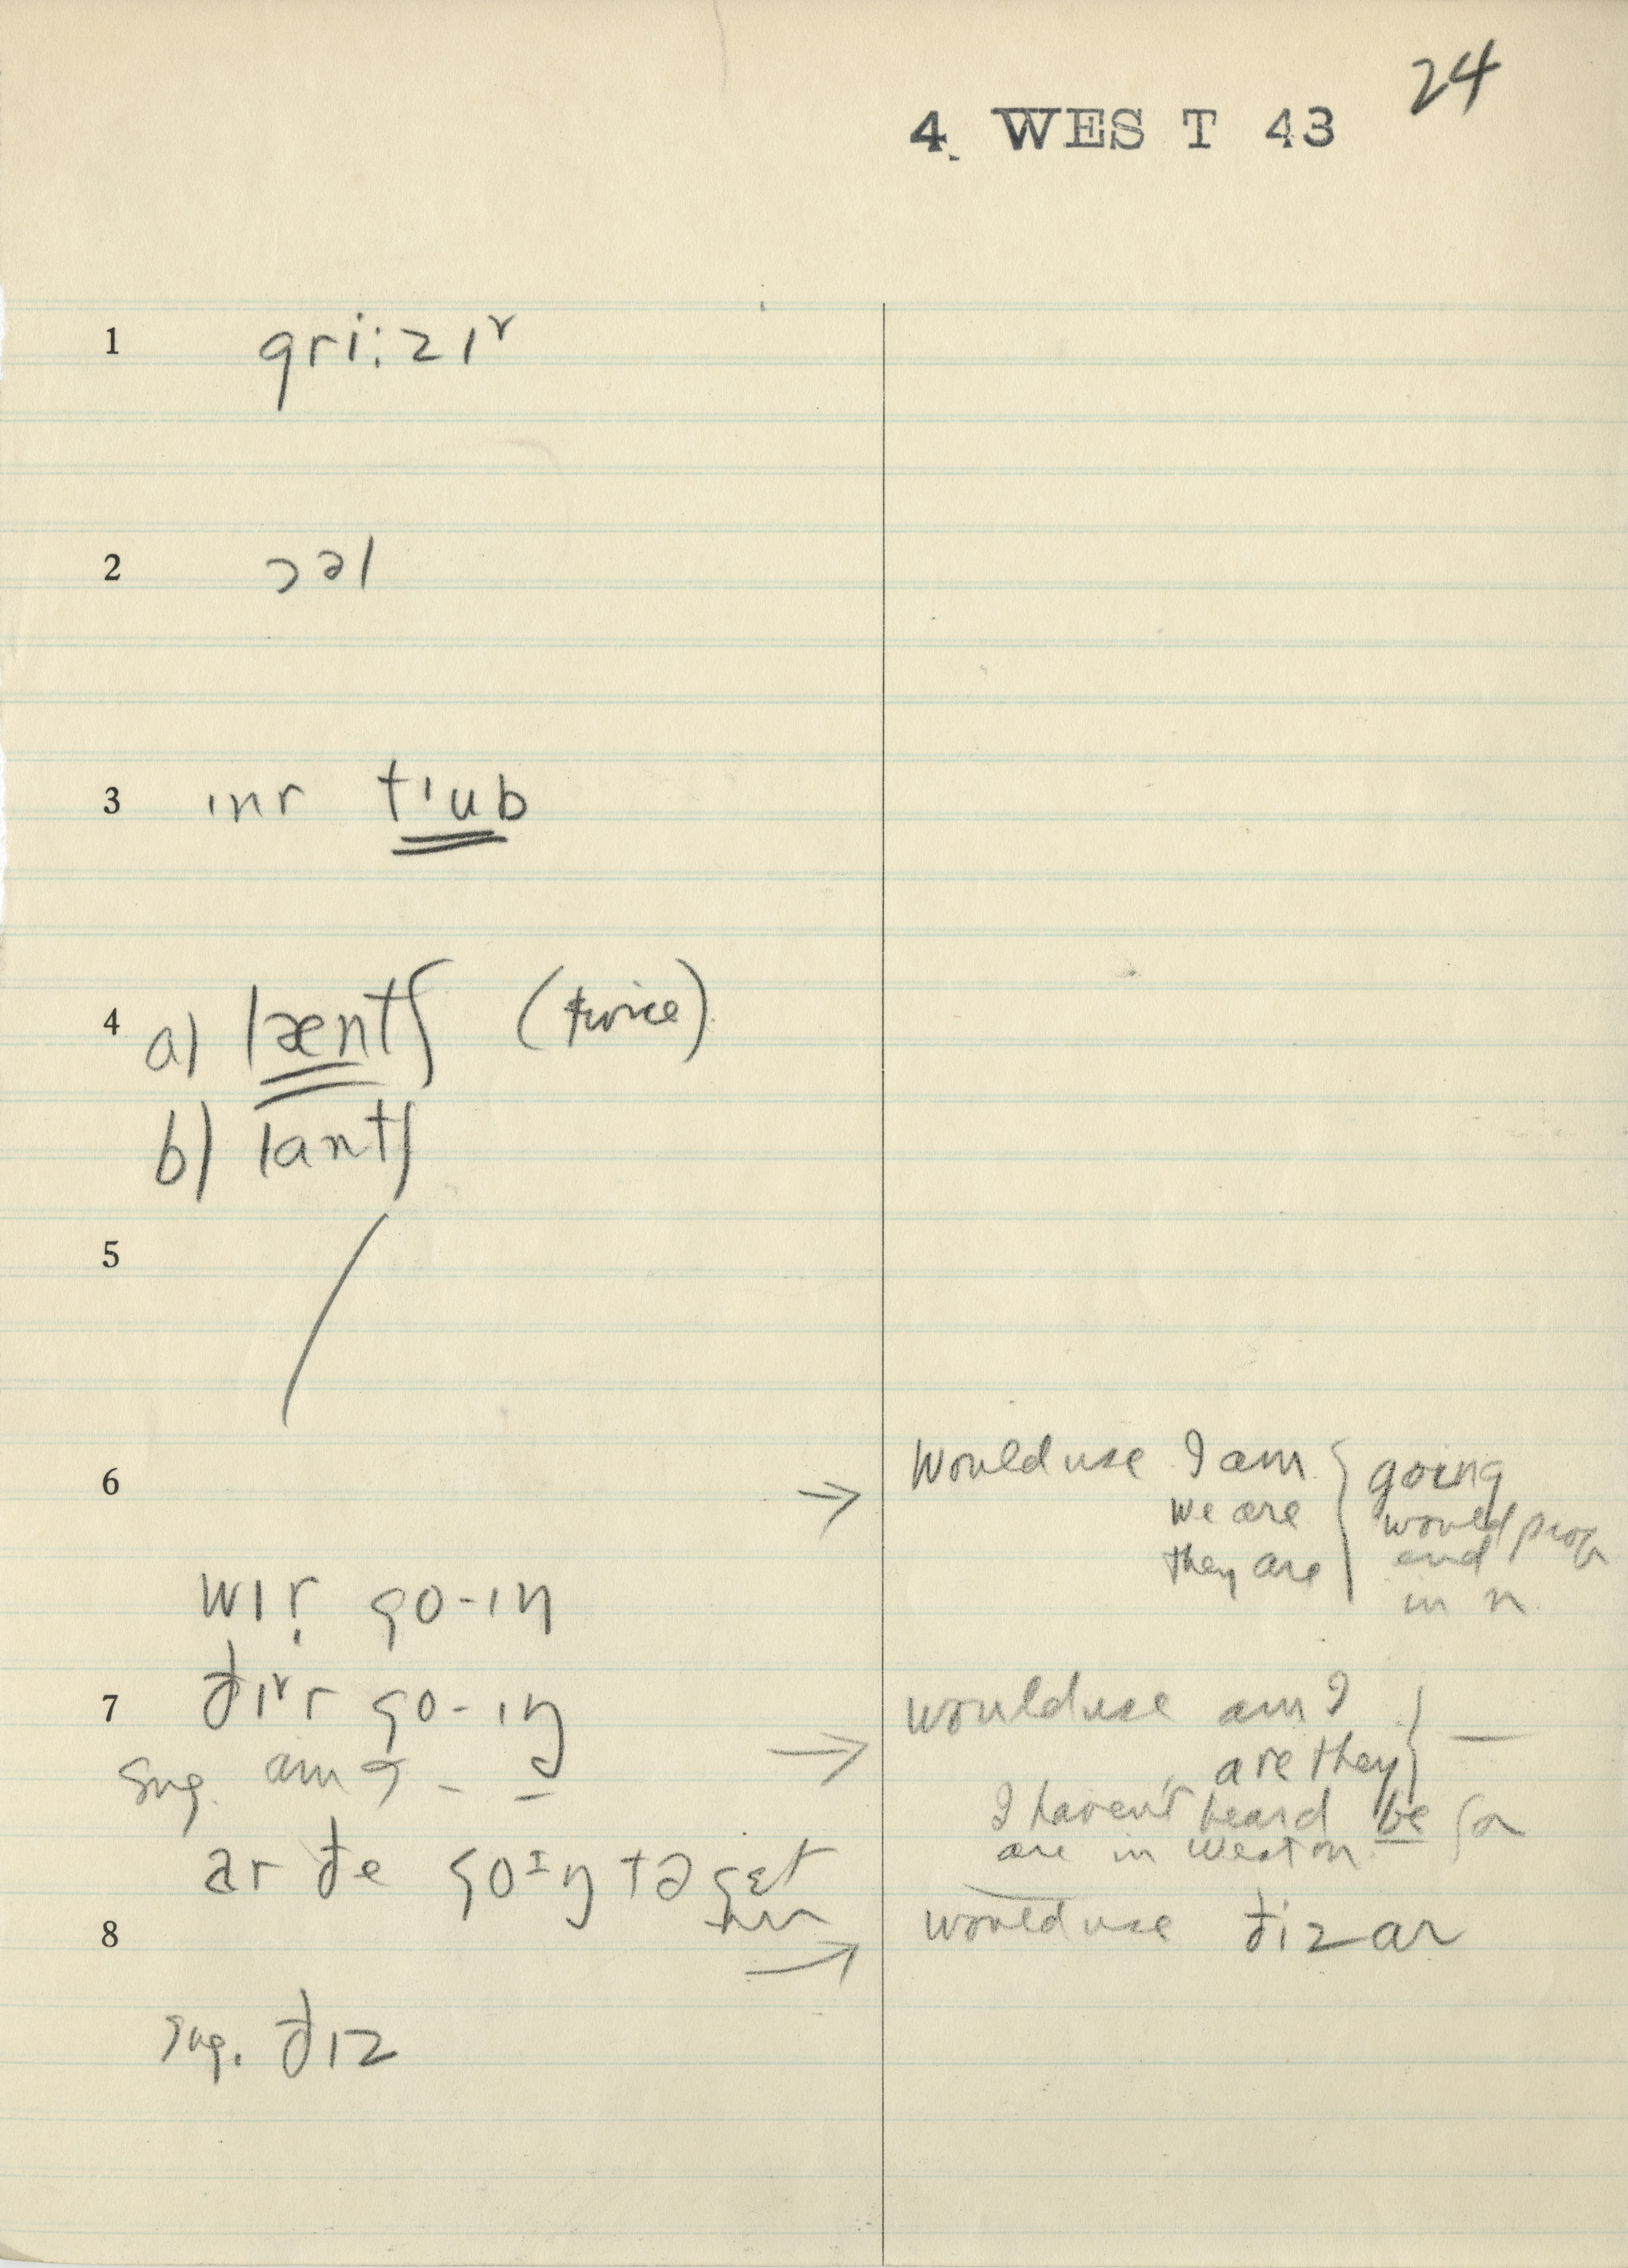 24
4. WES T 43
1 gri:zɪʳ
2 ɔəl
3 ɪnr tɪub
4 a) lænt∫ (twice)
b) lant∫
5
6 → Would use I am } going
We are would prob
they are end
in n.
wɪr̩ go-ɪŋ
7 ðɪʳr go-ɪŋ
→ would use am I } —
sug. am
are they
I haven't heard be for
are in Weston.
ar ðe goɪŋ tə gɛt
8 → would use ðiz ar
sug. ðɪz